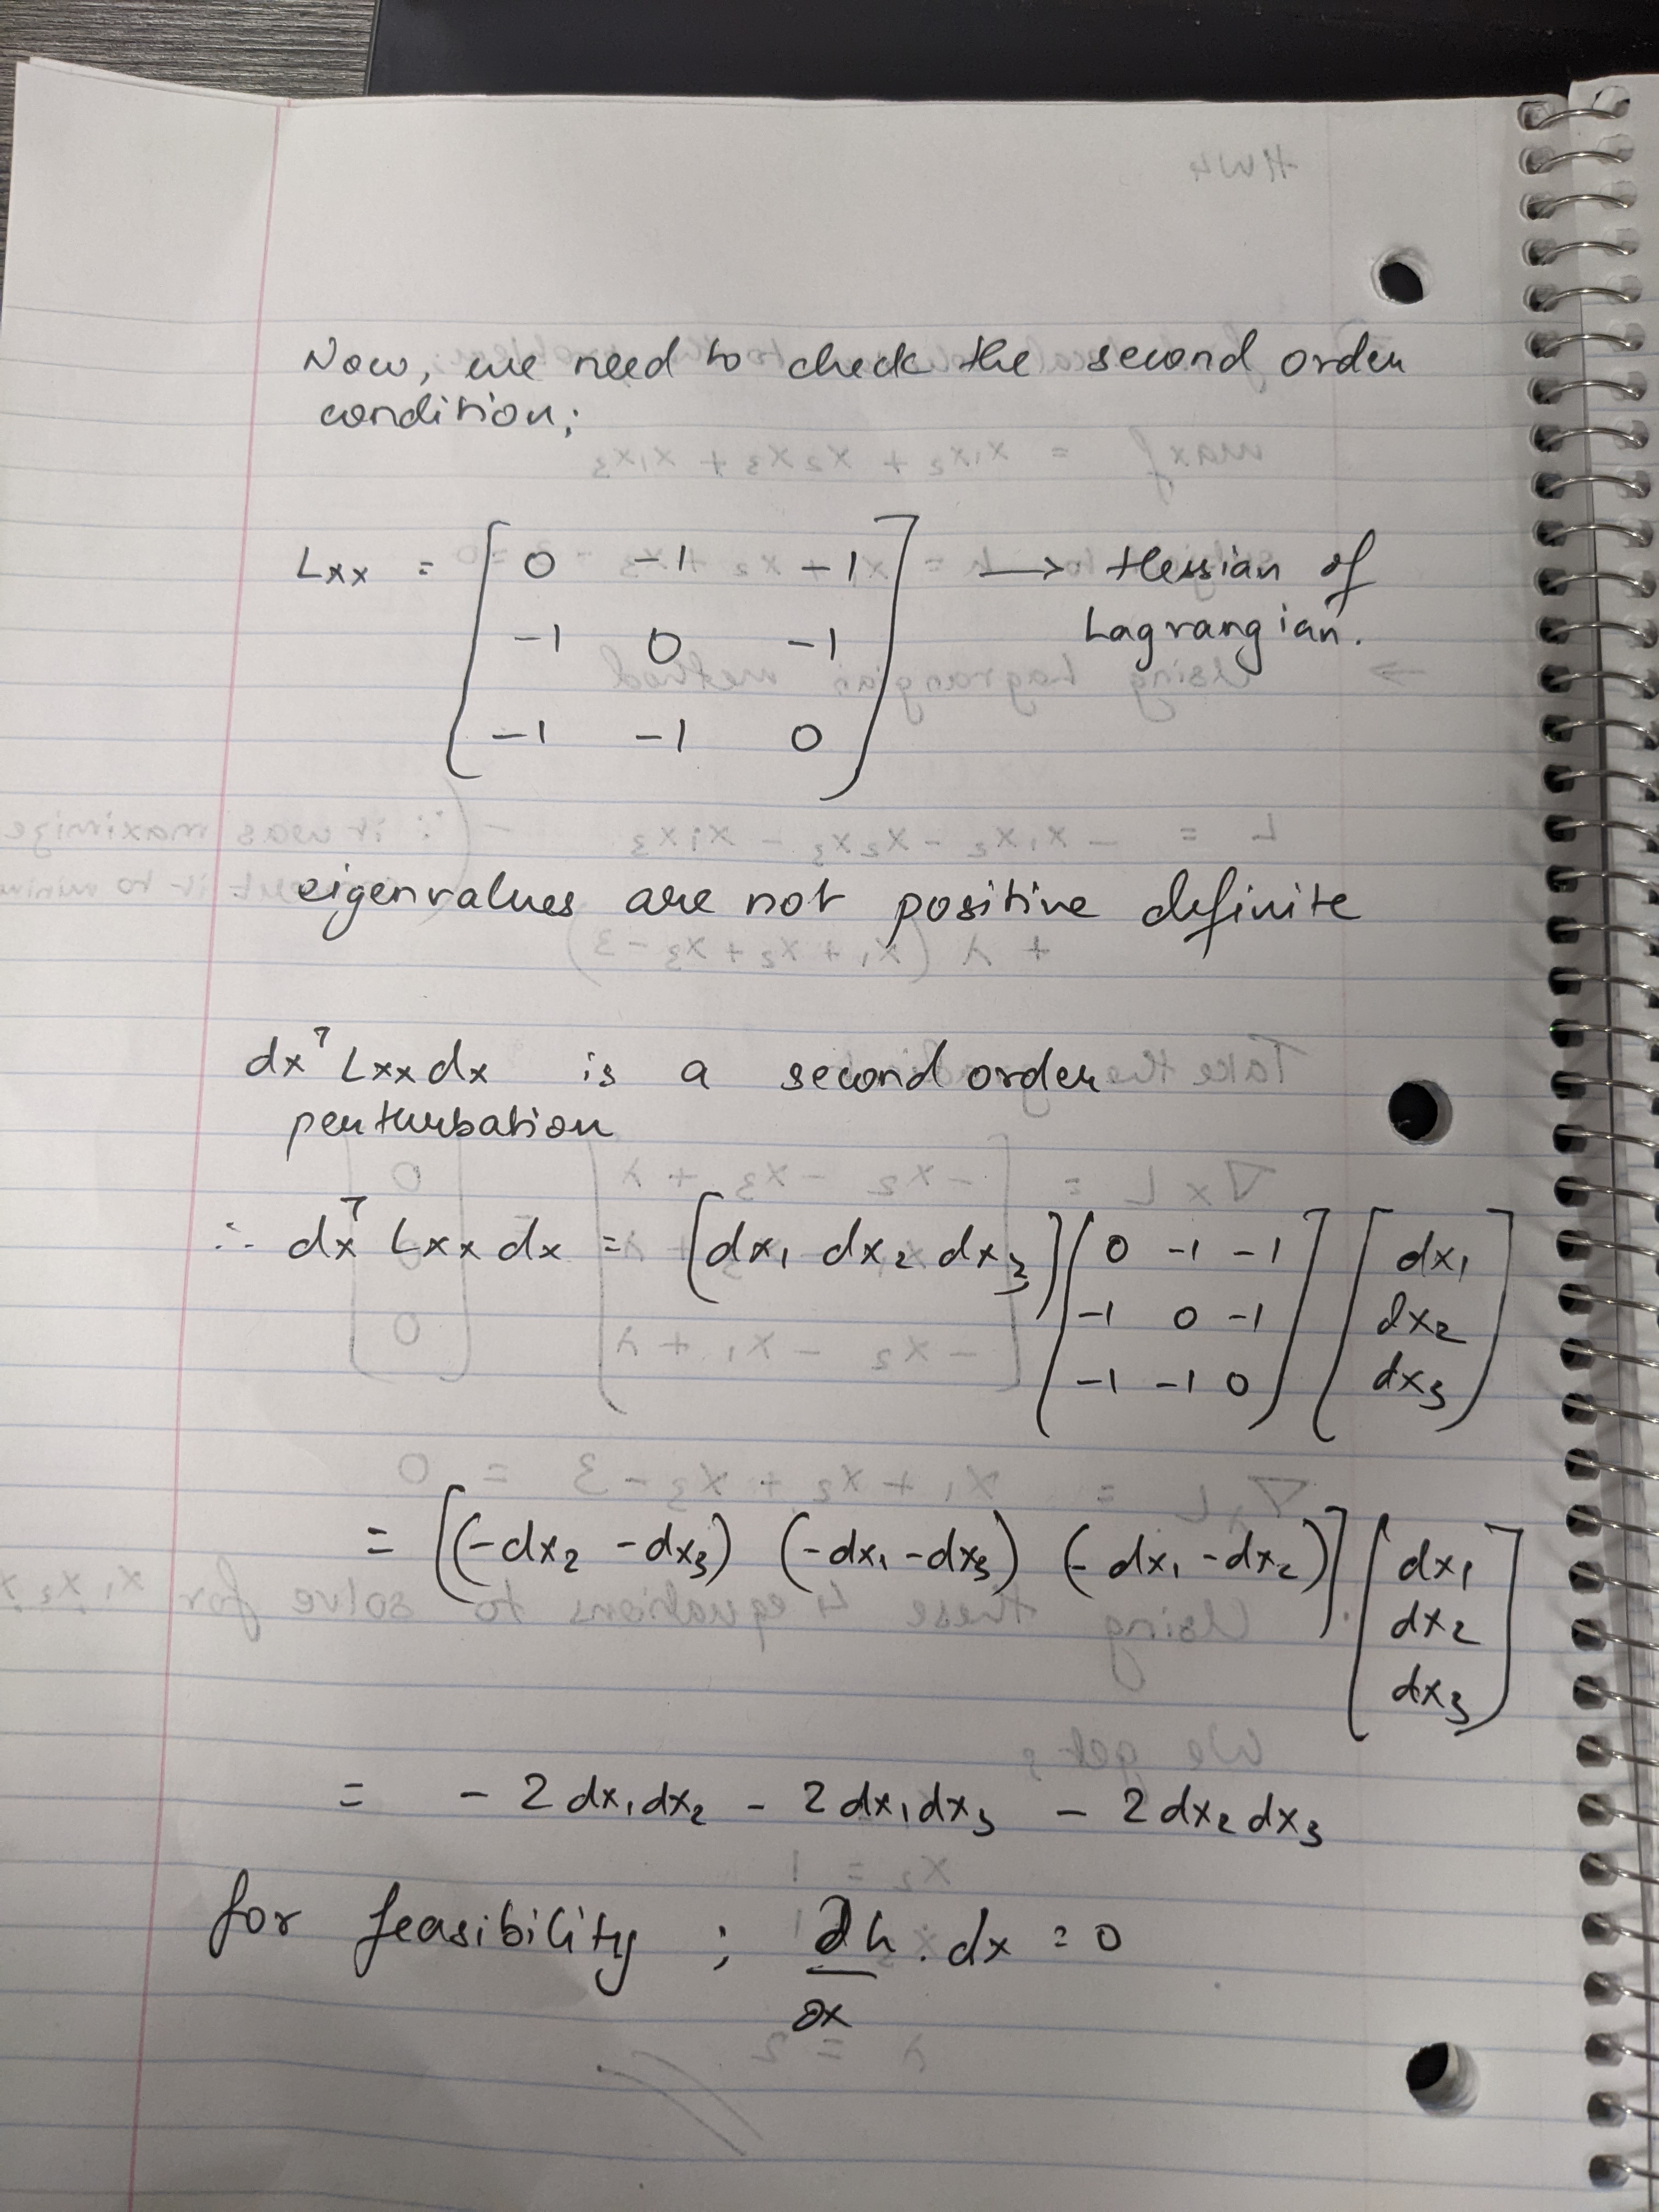 Now, we need to check the second order
condition;
Lxx = [ 0 -1 -1 ; -1 0 -1 ; -1 -1 0 ] → Hessian of
Lagrangian.
eigenvalues are not positive definite
dx^T Lxx dx is a second order
perturbation
∴ dx^T Lxx dx = [dx₁ dx₂ dx₃] [ 0 -1 -1 ; -1 0 -1 ; -1 -1 0 ] [ dx₁ ; dx₂ ; dx₃ ]
= [(-dx₂ -dx₃) (-dx₁ -dx₃) (-dx₁ -dx₂)] [ dx₁ ; dx₂ ; dx₃ ]
= - 2 dx₁dx₂ - 2 dx₁dx₃ - 2 dx₂dx₃
for feasibility ; ∂h/∂x . dx = 0